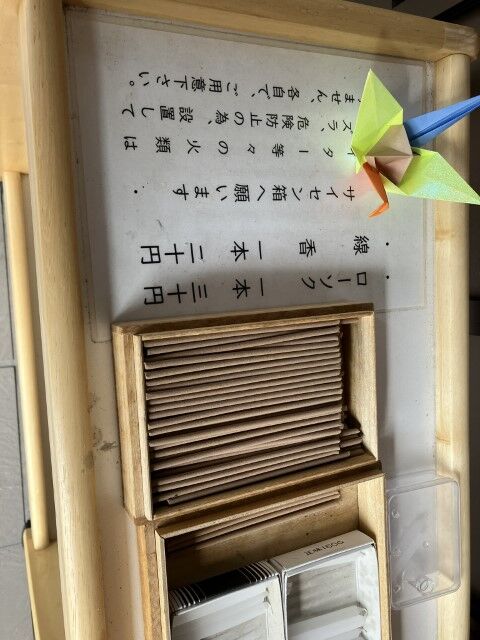 ・ローソク 一本 三十円
・線香 一本 二十円
サイセン箱へ願います
ター等々の火類は
、危険防止の為、設置して
ません、各自で、ご用意下さい。